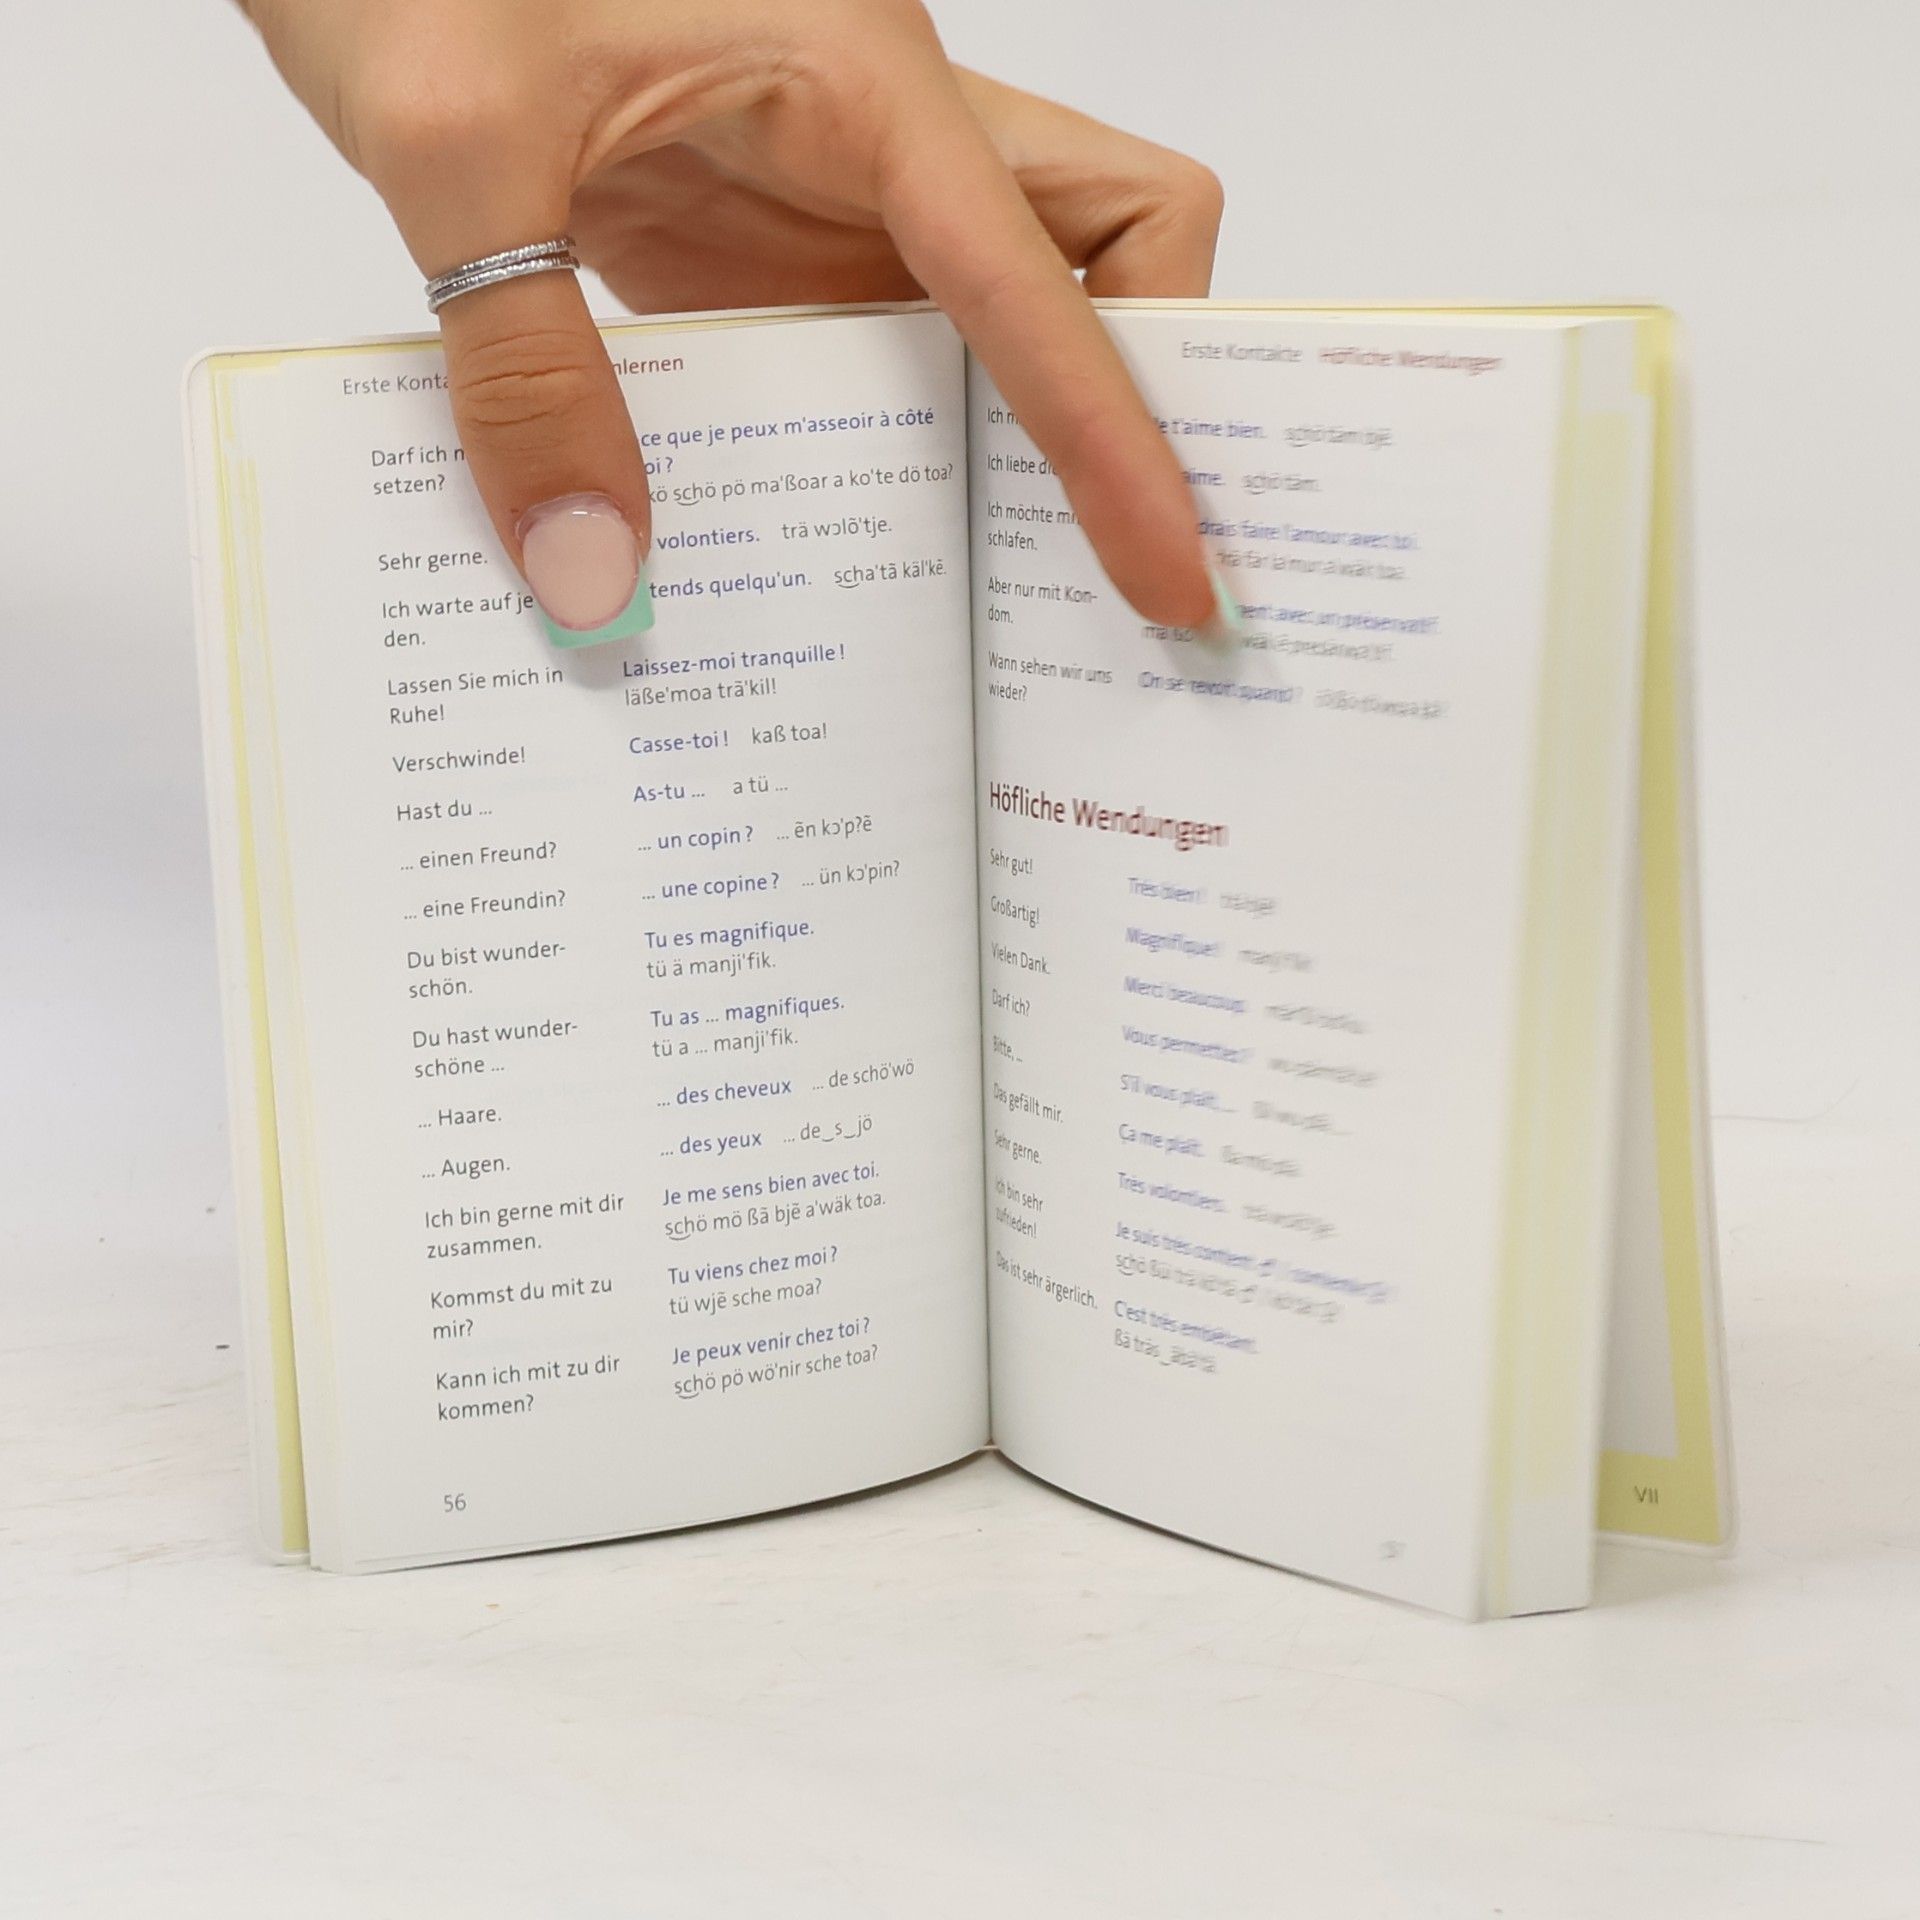 Erste
nlernen
Darf ich
setzen?
ce que je peux m'asseoir à côté
oi?
kö schö pö ma'ßoar a ko'te dö toa?
Sehr gerne.
volontiers. trä wɔlõ'tje.
Ich warte auf je
den.
tends quelqu'un. scha'tã käl'kẽ.
Lassen Sie mich in
Ruhe!
Laissez-moi tranquille!
läße'moa trã'kil!
Verschwinde!
Casse-toi! kaß toa!
Hast du ...
As-tu ... a tü ...
... einen Freund?
... un copin? ... ẽn kɔ'p?ẽ
... eine Freundin?
... une copine? ... ün kɔ'pin?
Du bist wunder-
schön.
Tu es magnifique.
tü ä manji'fik.
Du hast wunder-
schöne ...
Tu as ... magnifiques.
tü a ... manji'fik.
... Haare.
... des cheveux ... de schö'wö
... Augen.
... des yeux ... de_s_jö
Ich bin gerne mit dir
zusammen.
Je me sens bien avec toi.
schö mö ßã bjẽ a'wäk toa.
Kommst du mit zu
mir?
Tu viens chez moi?
tü wjẽ sche moa?
Kann ich mit zu dir
kommen?
Je peux venir chez toi?
schö pö wö'nir sche toa?
56
Erste Kontakte Höfliche Wendungen
Ich
t'aime bien.
Ich liebe
aime.
Ich möchte
schlafen.
faire l'amour avec toi.
Aber nur mit Kon-
dom.
avec un préservatif.
Wann sehen wir uns
wieder?
On se revoit quand?
Höfliche Wendungen
Sehr gut!
Très bien!
Großartig!
Magnifique!
Vielen Dank.
Merci beaucoup.
Darf ich?
Vous permettez?
Bitte, ...
S'il vous plaît, ...
Das gefällt mir.
Ça me plaît.
Sehr gerne.
Très volontiers.
Ich bin sehr
zufrieden!
Je suis très content
Das ist sehr ärgerlich.
C'est très embêtant.
VII